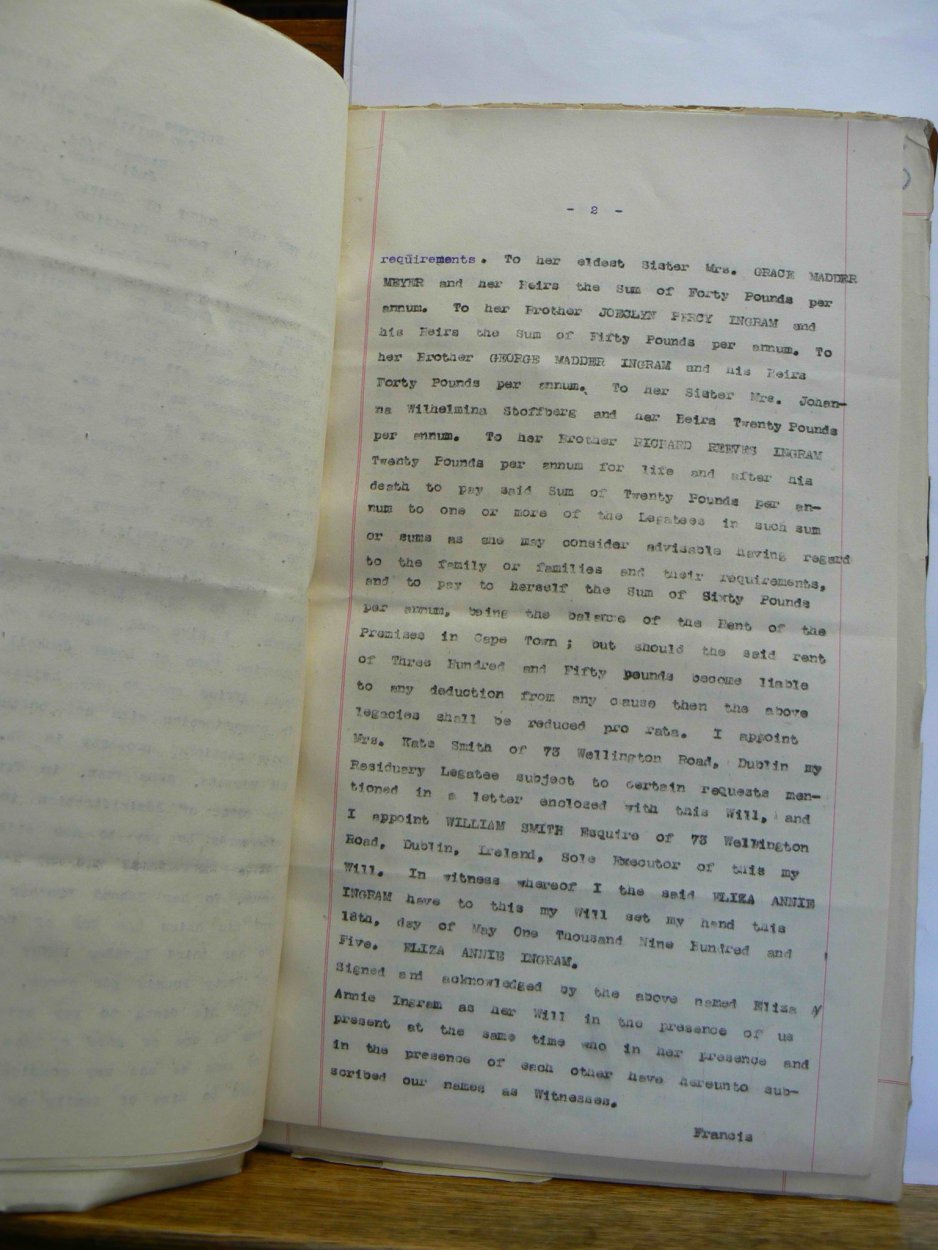 - 2 -
requirements. To her eldest Sister Mrs. GRACE MADDER
MEYER and her Heirs the Sum of Forty Pounds per
annum. To her Brother JOECLYN PERCY INGRAM and
his Heirs the Sum of Fifty Pounds per annum. To
her Brother GEORGE MADDER INGRAM and his Heirs
Forty Pounds per annum. To her Sister Mrs. Johan-
na Wilhelmina Stoffberg and her Heirs Twenty Pounds
per annum. To her Brother RICHARD REEVES INGRAM
Twenty Pounds per annum for life and after his
death to pay said Sum of Twenty Pounds per an-
num to one or more of the Legatees in such sum
or sums as she may consider advisable having regard
to the family or families and their requirements,
and to pay to herself the Sum of Sixty Pounds
per annum, being the balance of the Rent of the
Premises in Cape Town ; but should the said rent
of Three Hundred and Fifty pounds become liable
to any deduction from any cause then the above
legacies shall be reduced pro rata. I appoint
Mrs. Kate Smith of 73 Wellington Road, Dublin my
Residuary Legatee subject to certain requests men-
tioned in a letter enclosed with this Will, and
I appoint WILLIAM SMITH Esquire of 73 Wellington
Road, Dublin, Ireland, Sole Executor of this my
Will. In witness whereof I the said ELIZA ANNIE
INGRAM have to this my Will set my hand this
18th, day of May One Thousand Nine Hundred and
Five. ELIZA ANNIE INGRAM.
Signed and acknowledged by the above named Eliza
Annie Ingram as her Will in the presence of us
present at the same time who in her presence and
in the presence of each other have hereunto sub-
scribed our names as Witnesses.
Francis